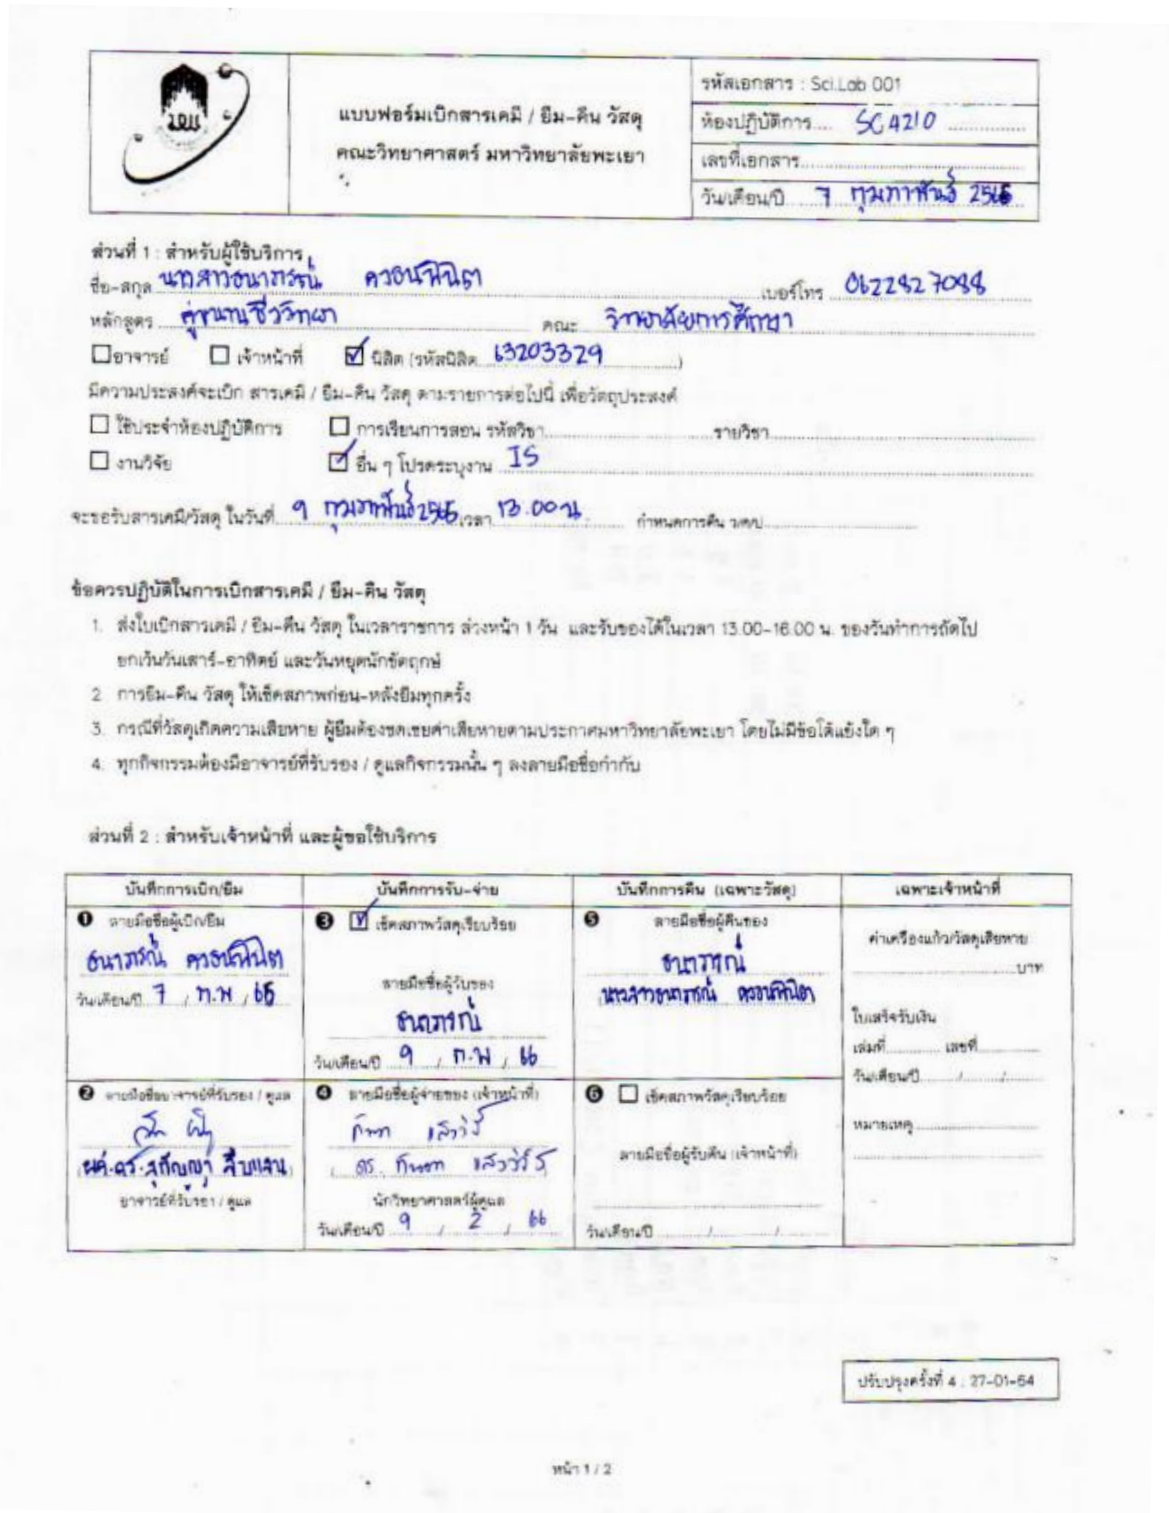 แบบฟอร์มเบิกสารเคมี / ยืม-คืน วัสดุ
คณะวิทยาศาสตร์ มหาวิทยาลัยพะเยา
รหัสเอกสาร : Sci.Lab 001
ห้องปฏิบัติการ.... SC4210
เลขที่เอกสาร
วัน/เดือน/ปี 7 กุมภาพันธ์ 2566
ส่วนที่ 1 : สำหรับผู้ใช้บริการ
ชื่อ-สกุล นางสาวธนาภรณ์ เบอร์โทร 0622827088
หลักสูตร คู่ขนานชีววิทยา คณะ วิทยาลัยการศึกษา
อาจารย์ เจ้าหน้าที่ นิสิต (รหัสนิสิต 63203329 )
มีความประสงค์จะเบิก สารเคมี / ยืม-คืน วัสดุ ตามรายการต่อไปนี้ เพื่อวัตถุประสงค์
ใช้ประจำห้องปฏิบัติการ การเรียนการสอน รหัสวิชา รายวิชา
งานวิจัย อื่น ๆ โปรดระบุงาน IS
จะขอรับสารเคมี/วัสดุ ในวันที่ 9 กุมภาพันธ์ 2566 เวลา 13.00 น. กำหนดการคืน ว/ด/ป
ข้อควรปฏิบัติในการเบิกสารเคมี / ยืม-คืน วัสดุ
1. ส่งใบเบิกสารเคมี / ยืม-คืน วัสดุ ในเวลาราชการ ล่วงหน้า 1 วัน และรับของได้ในเวลา 13.00-16.00 น. ของวันทำการถัดไป
ยกเว้นวันเสาร์-อาทิตย์ และวันหยุดนักขัตฤกษ์
2. การยืม-คืน วัสดุ ให้เช็คสภาพก่อน-หลังยืมทุกครั้ง
3. กรณีที่วัสดุเกิดความเสียหาย ผู้ยืมต้องชดเชยค่าเสียหายตามประกาศมหาวิทยาลัยพะเยา โดยไม่มีข้อโต้แย้งใด ๆ
4. ทุกกิจกรรมต้องมีอาจารย์ที่รับรอง / ดูแลกิจกรรมนั้น ๆ ลงลายมือชื่อกำกับ
ส่วนที่ 2 : สำหรับเจ้าหน้าที่ และผู้ขอใช้บริการ
บันทึกการเบิก/ยืม บันทึกการรับ-จ่าย บันทึกการคืน (เฉพาะวัสดุ) เฉพาะเจ้าหน้าที่
❶ ลายมือชื่อผู้เบิก/ยืม
ธนาภรณ์
วัน/เดือน/ปี 7 / ก.พ / 66
❸ เช็คสภาพวัสดุเรียบร้อย
ลายมือชื่อผู้รับของ
ธนาภรณ์
วัน/เดือน/ปี 9 / ก.พ / 66
❺ ลายมือชื่อผู้คืนของ
ธนาภรณ์
นางสาวธนาภรณ์
ค่าเครื่องแก้ว/วัสดุเสียหาย
บาท
ใบเสร็จรับเงิน
เล่มที่ เลขที่
วัน/เดือน/ปี / /
หมายเหตุ
❷ ลายมือชื่ออาจารย์ที่รับรอง / ดูแล
(ผศ.ดร.สุกัญญา)
อาจารย์ที่รับรอง / ดูแล
❹ ลายมือชื่อผู้จ่ายของ (เจ้าหน้าที่)
นักวิทยาศาสตร์ผู้ดูแล
วัน/เดือน/ปี 9 / 2 / 66
❻ เช็คสภาพวัสดุเรียบร้อย
ลายมือชื่อผู้รับคืน (เจ้าหน้าที่)
วัน/เดือน/ปี / /
ปรับปรุงครั้งที่ 4 : 27-01-64
หน้า 1 / 2